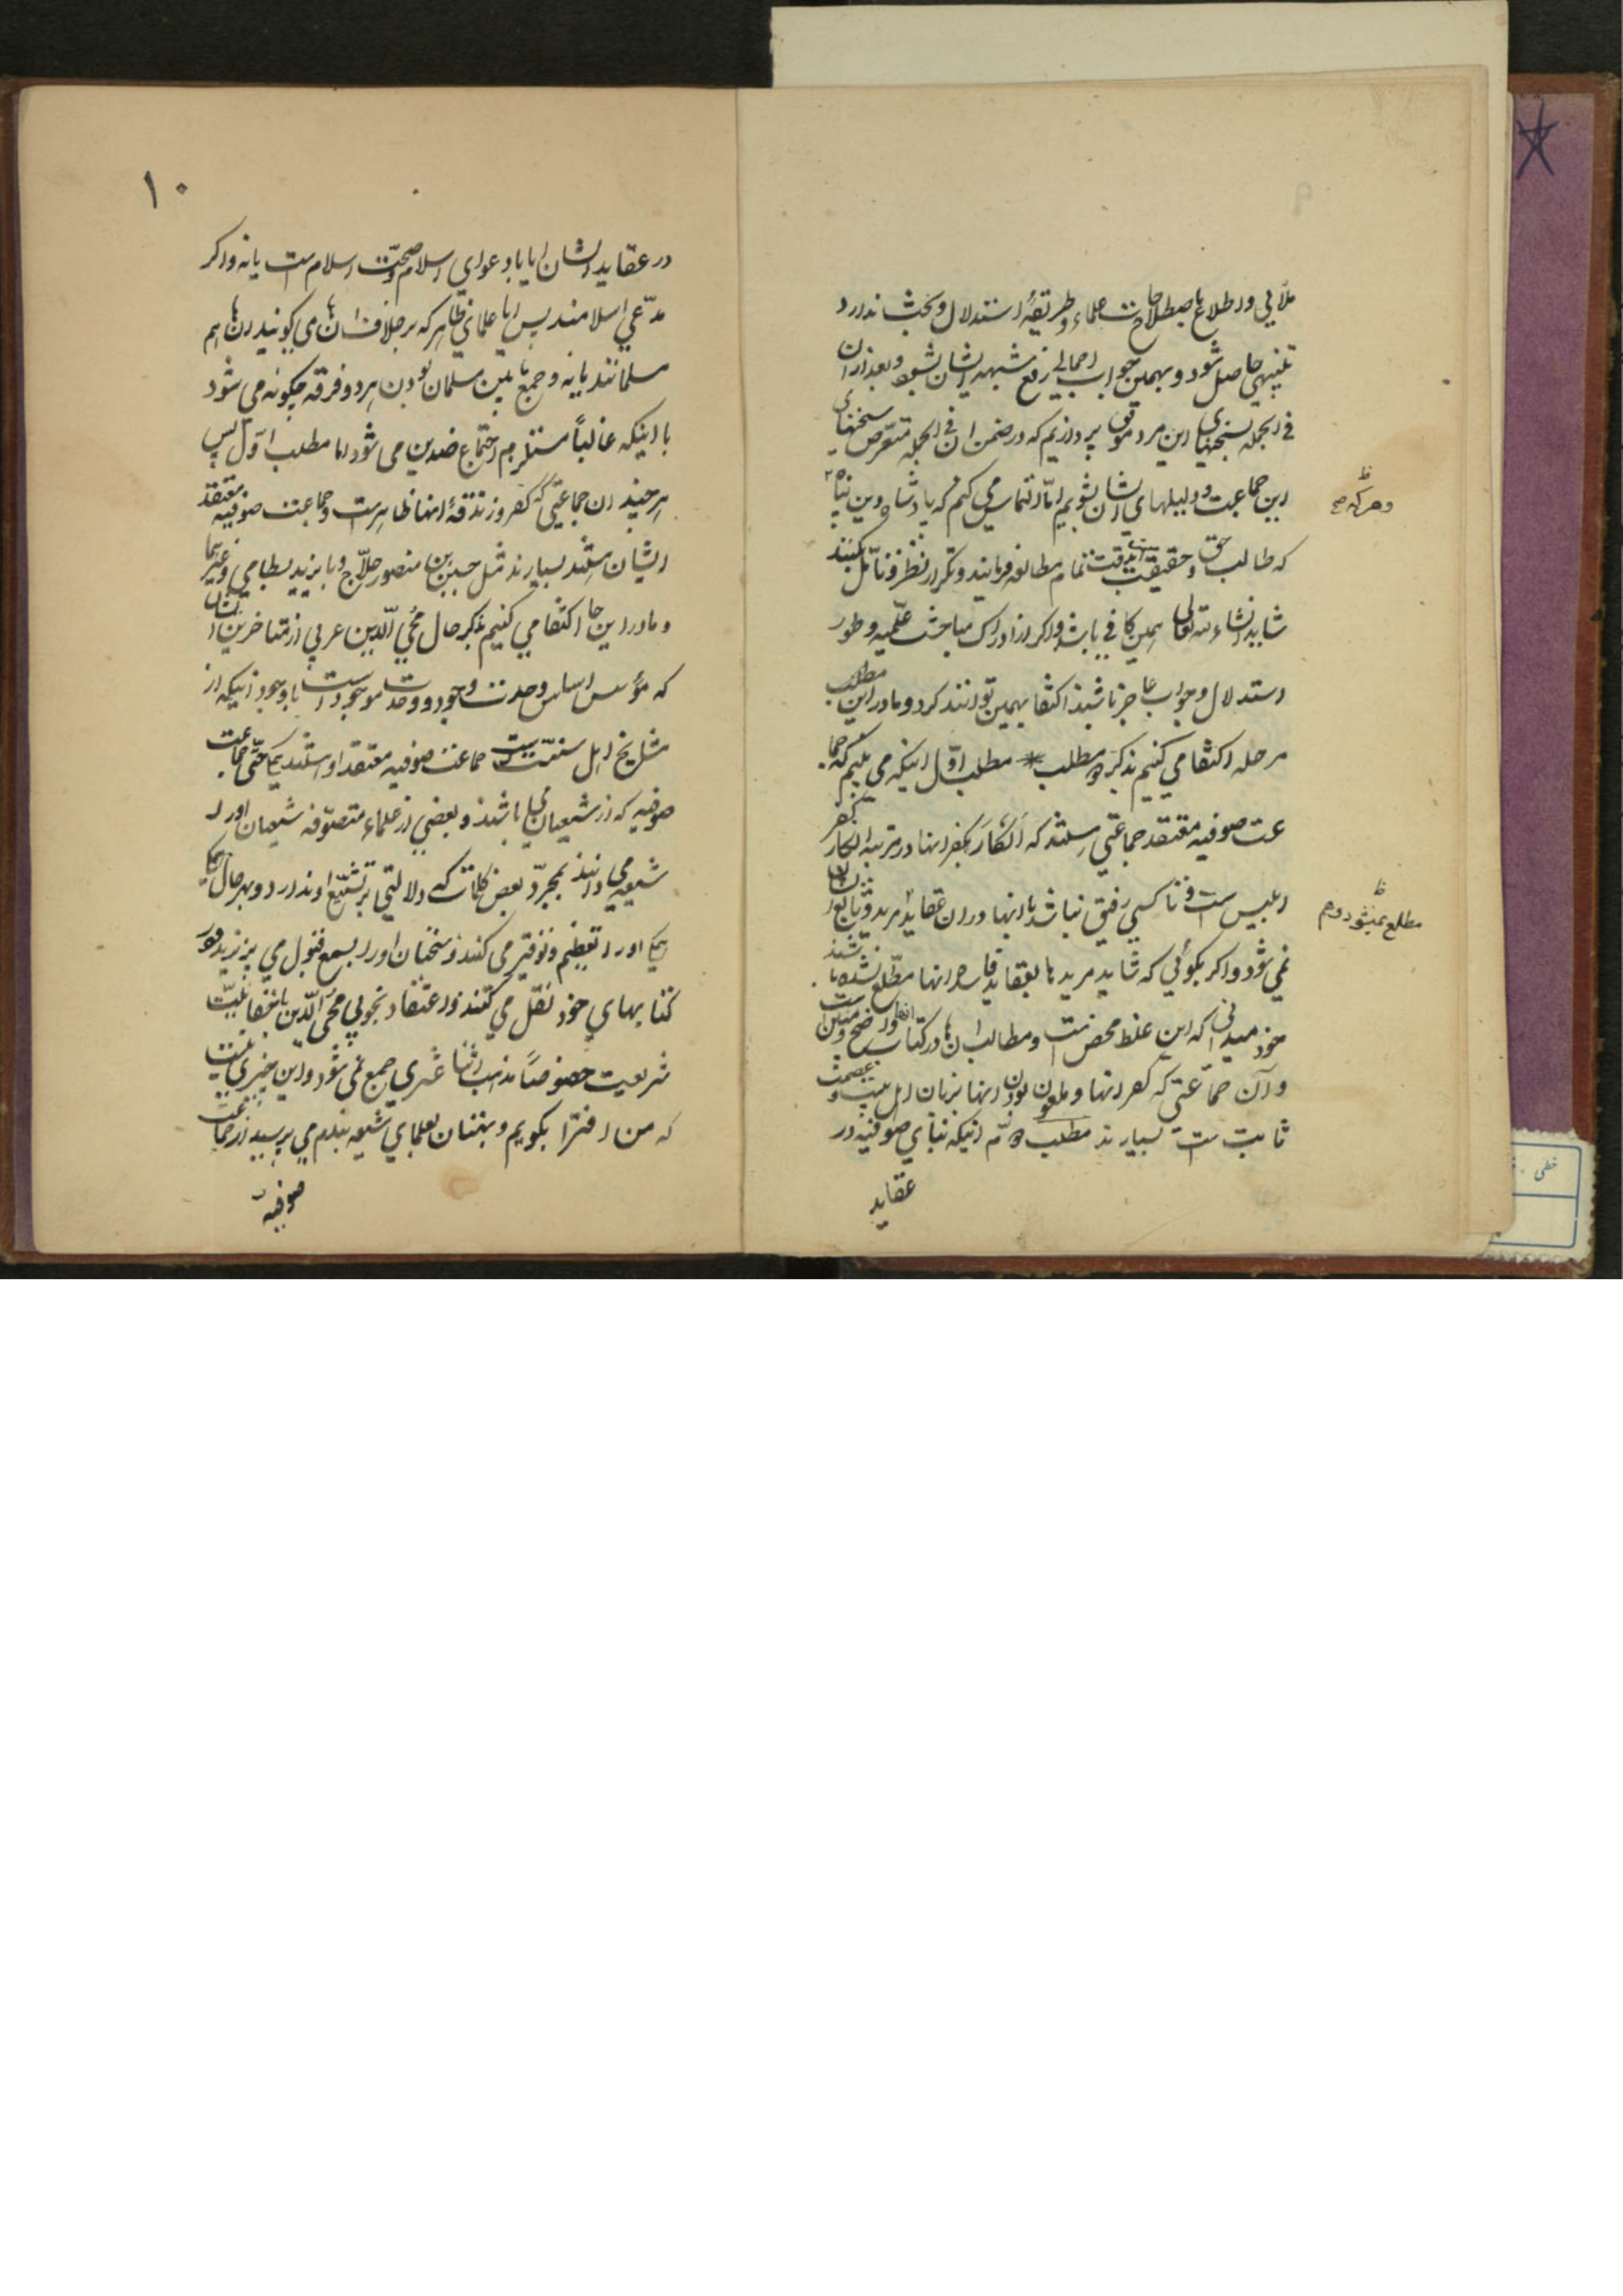 ملایی و اطلاع باصطلاحات علماء و طریقهٔ استدلال و بحث ندارد
تنبیهی حاصل شود و بهمین جواب اجمالی رفع شبهه ایشان بشود و بعد از آن
فی الجمله بسخنهای این مرد موفق پردازیم که در ضمن آن فی الجمله متعرض سخنهای
این جماعت و دلیلهای ایشان بشویم اما التماس می کنم که پادشاه دین پناه
که طالب حق و حقیقت بدقت تمام مطالعه فرمایند و تکرار نظر و تأمل بکنند
شاید انشاء الله تعالی همین کافی باشد و اگر از ادراک مباحث علمیه و طور
استدلال و جواب عاجز باشند اکتفا بهمین توانند کرد و ما در این مطلب
مرحله اکتفا می کنیم بذکر دو مطلب مطلب اول اینکه می بینیم که جما
عت صوفیه معتقد جماعتی هستند که انکار کفر انها در مرتبه انکار کفر
ابلیس است و تا کسی رفیق نباشد با انها در ان عقاید مرید و تابع ایشان
نمی شود و اگر بگوئی که شاید مریدها بعقاید فاسد انها مطلع نشده باشند
خود میدانی که این غلط محض است و مطالب ان ها در کتاب انها واضح و مبین است
و آن جماعتی که کفر انها و ملعون بودن انها بزبان اهل بیت عصمت
ثابت است بسیارند مطلب دوم اینکه بنای صوفیه در
عقاید
ظ
و هر که صح
ظ
مطلع نمیشود دوم
۱۰
در عقاید ایشان ایا با دعوای اسلام و صحت اسلام است یا نه و اگر
مدعی اسلامند پس ایا علمای ظاهر که بر خلاف ان ها می گویند ان ها هم
مسلمانند یا نه و جمع ما بین مسلمان بودن هر دو فرقه چگونه می شود
با اینکه غالباً مستلزم اجتماع ضدین می شود اما مطلب اول پس
هر چند ان جماعتی که کفر و زندقهٔ انها ظاهر است و جماعت صوفیه معتقد
ایشان هستند بسیارند مثل حسین بن منصور حلاج و بایزید بسطامی و غیرهما
و ما در این جا اکتفا می کنیم بذکر حال محی الدین عربی از متاخرین ایشان
که مؤسس اساس وحدت وجود و وحدت موجود است با وجود اینکه از
مشایخ اهل سنت است جماعت صوفیه معتقد او هستند حتی جماعت
صوفیه که از شیعیان می باشند و بعضی از علماء متصوفه شیعیان او را
شیعه می دانند بمجرد بعض کلمات که دلالتی بر تشیع او ندارد و بهر حال
او را تعظیم و توقیر می کنند و سخنان او را بسمع قبول می پذیرند و در
کتابهای خود نقل می کنند و اعتقاد بخوبی محی الدین با حقانیت
شریعت خصوصاً مذهب اثنا عشری جمع نمی شود و این چیزی نیست
که من افترا بگویم و بهتان بعلمای شیعه ببندم می پرسید از جماعت
صوفیه